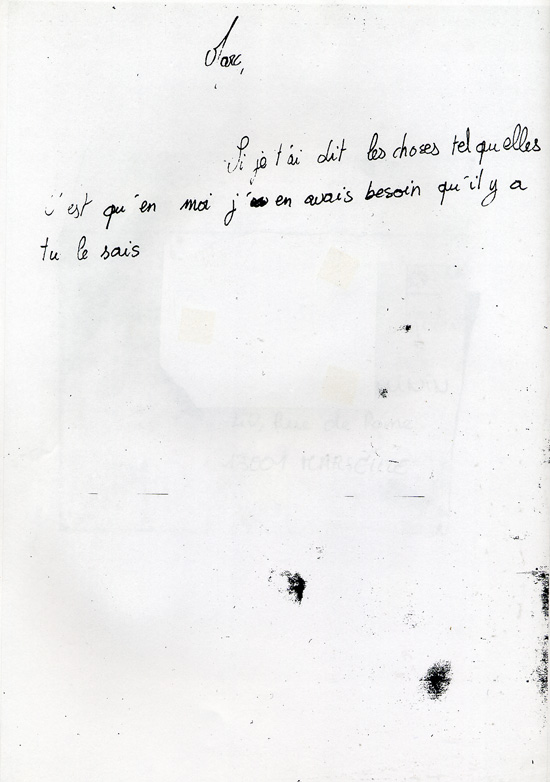 Marc,
Si je t'ai dit les choses tel qu'elles
c'est qu'en moi j'en avais besoin qu'il y a
tu le sais
Rue de Rome
13001 MARSEILLE